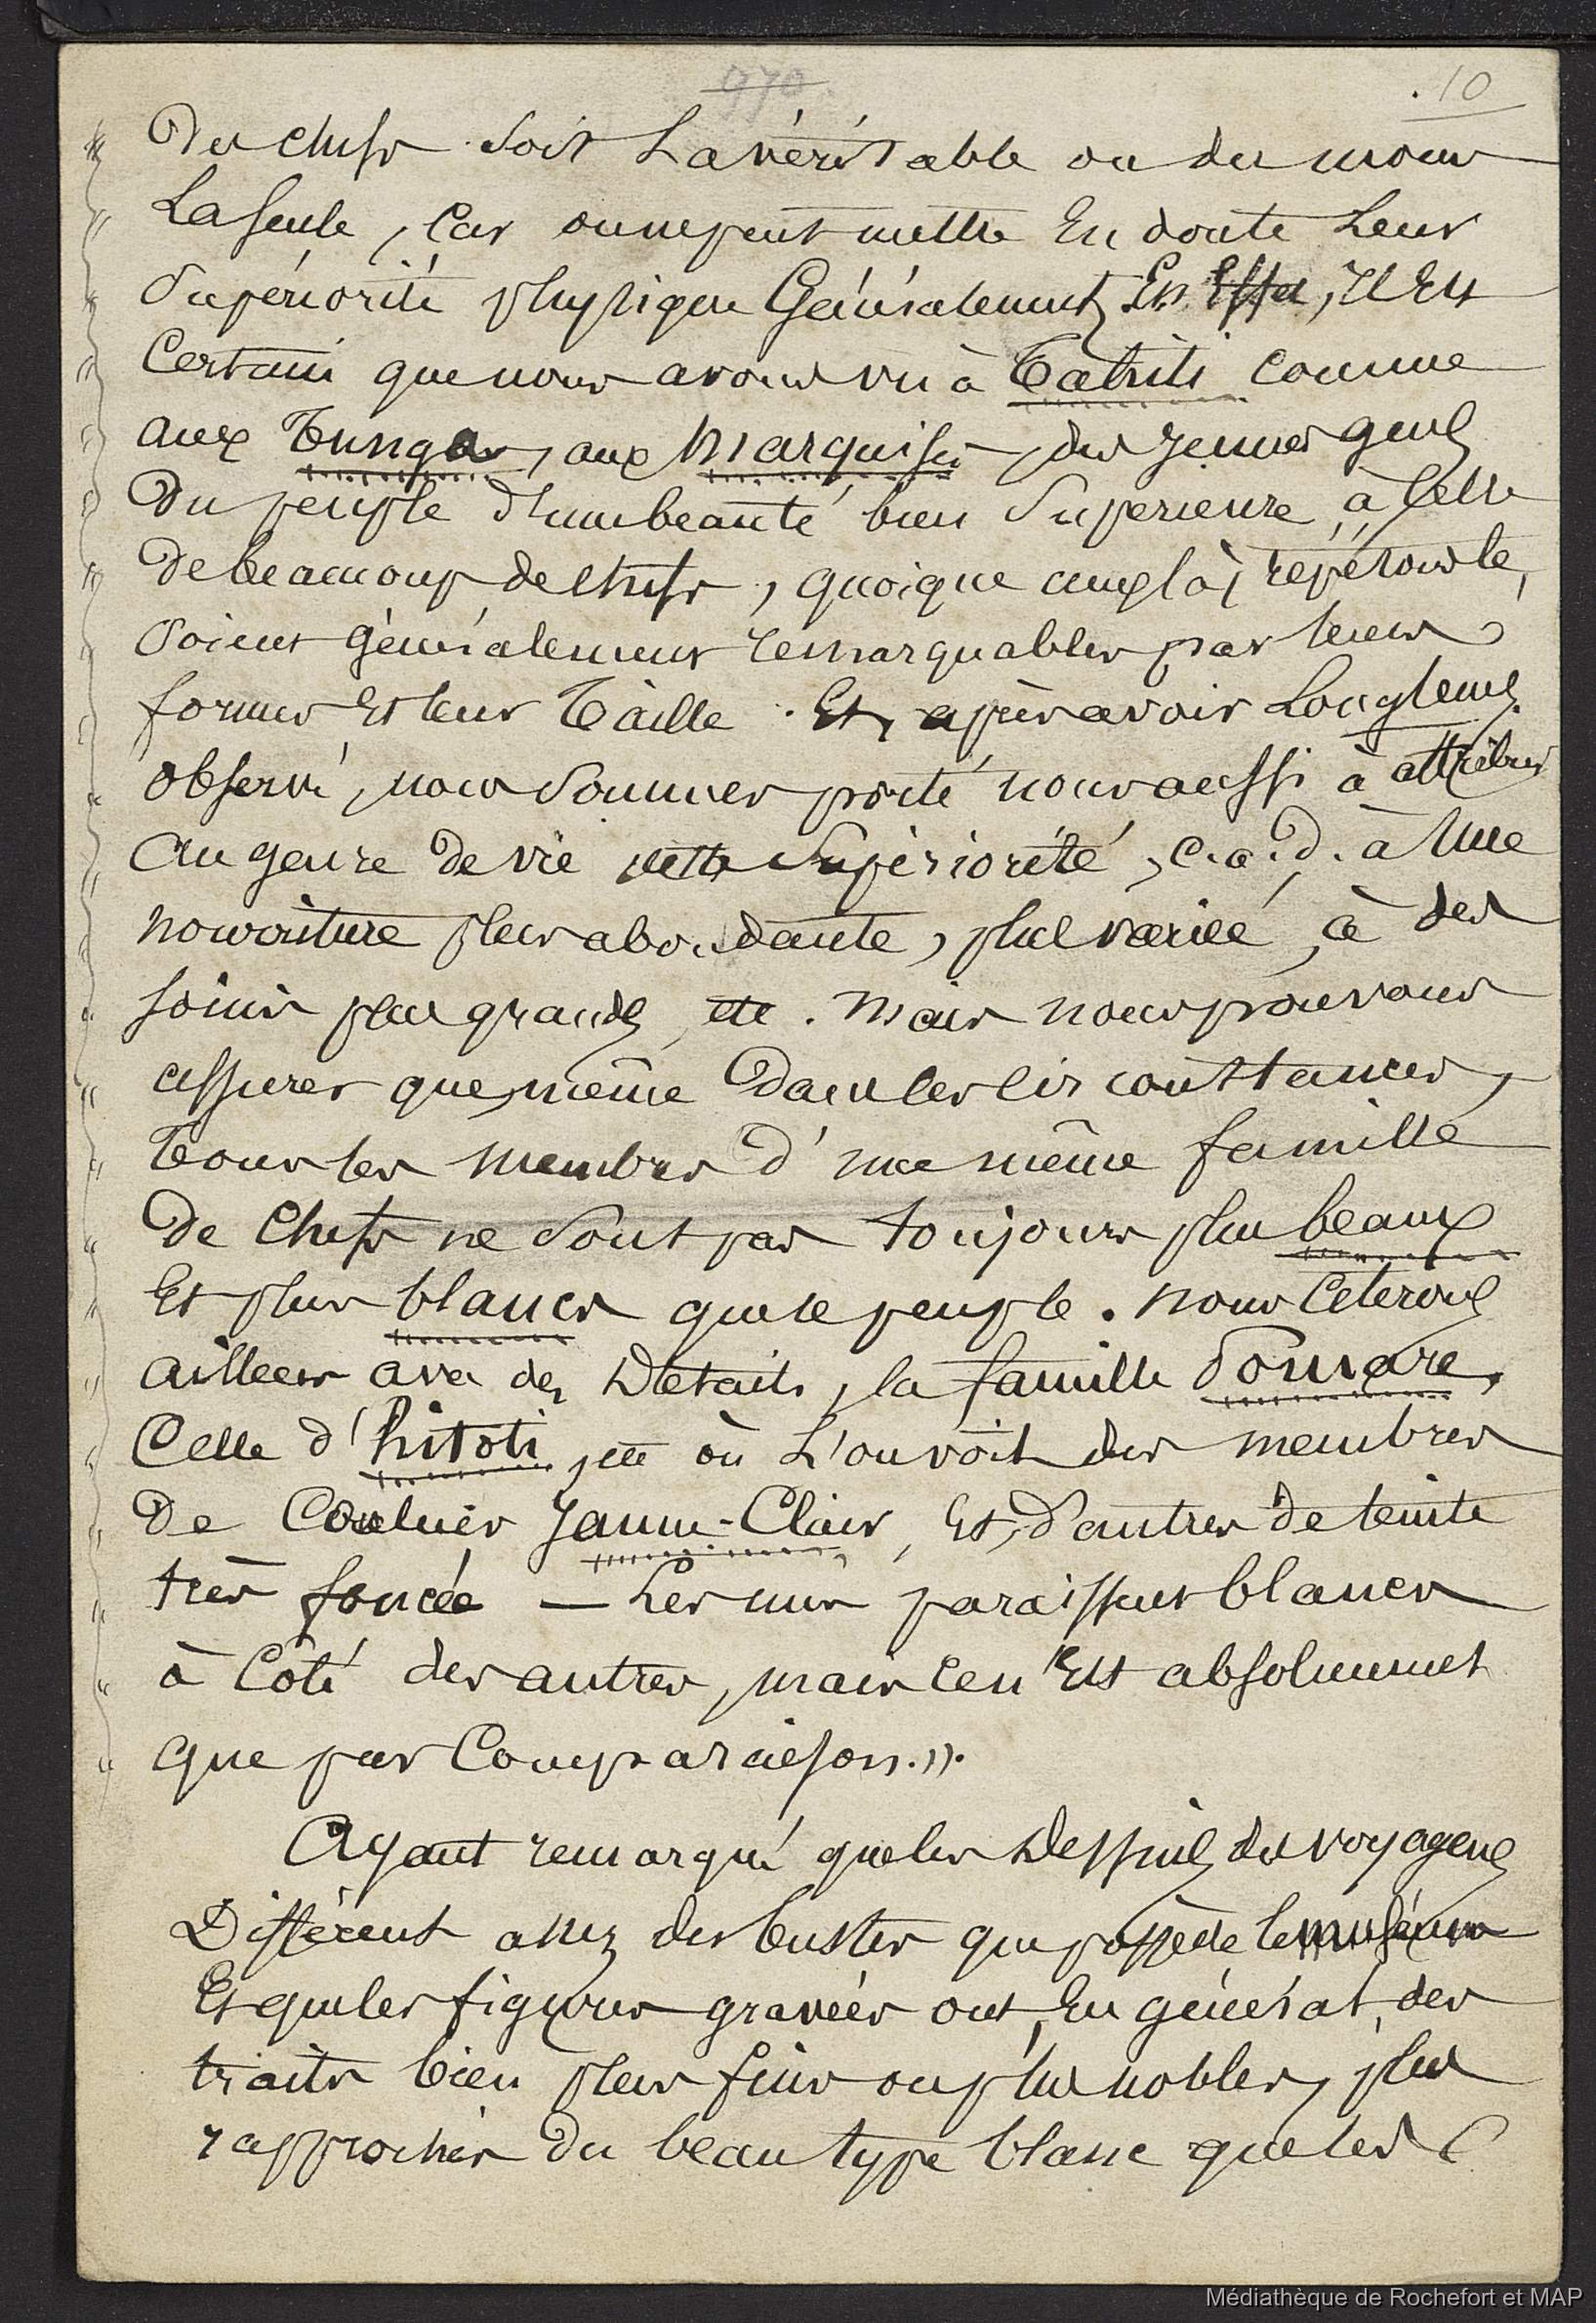 970
10
des chefs soit la véritable ou du moins
la seule, car on ne peut mettre en doute leur
supériorité physique généralement. En effet, il est
certain que nous avons vu à Tahiti comme
aux Tunga, aux Marquises, des jeunes gens
du peuple d'une beauté bien superieure, à celle
de beaucoup de chefs, quoique ceux là, répétons le,
soient généralement remarquables par leurs
formes et leur taille. Et, après avoir longtems
observé, nous sommes porté nous aussi à attribuer
au genre de vie cette supériorité, c.a.d. à une
nourriture plus abondante, plus variée, à des
soins plus grands, etc. Mais nous pouvons
assurer que, même dans ces circonstances,
tous les membres d'une même famille
de chefs ne sont pas toujours plus beaux
et plus blancs que le peuple. Nous citerons
ailleurs avec des détails, la famille Pomare,
celle d'hitoti, etc où l'on voit des membres
de couleur jaune-clair, et, d'autres de teinte
très foncée — Les uns paraissent blancs
à côté des autres, mais ce n'est absolument
que par comparaison.».
Ayant remarqué que les dessins des voyageurs
diffèrent assez des bustes que possède le muséum
et que les figures gravées ont, en général, des
traits bien plus fins ou plus nobles, plus
rapprochés du beau type blanc que les
Médiathèque de Rochefort et MAP